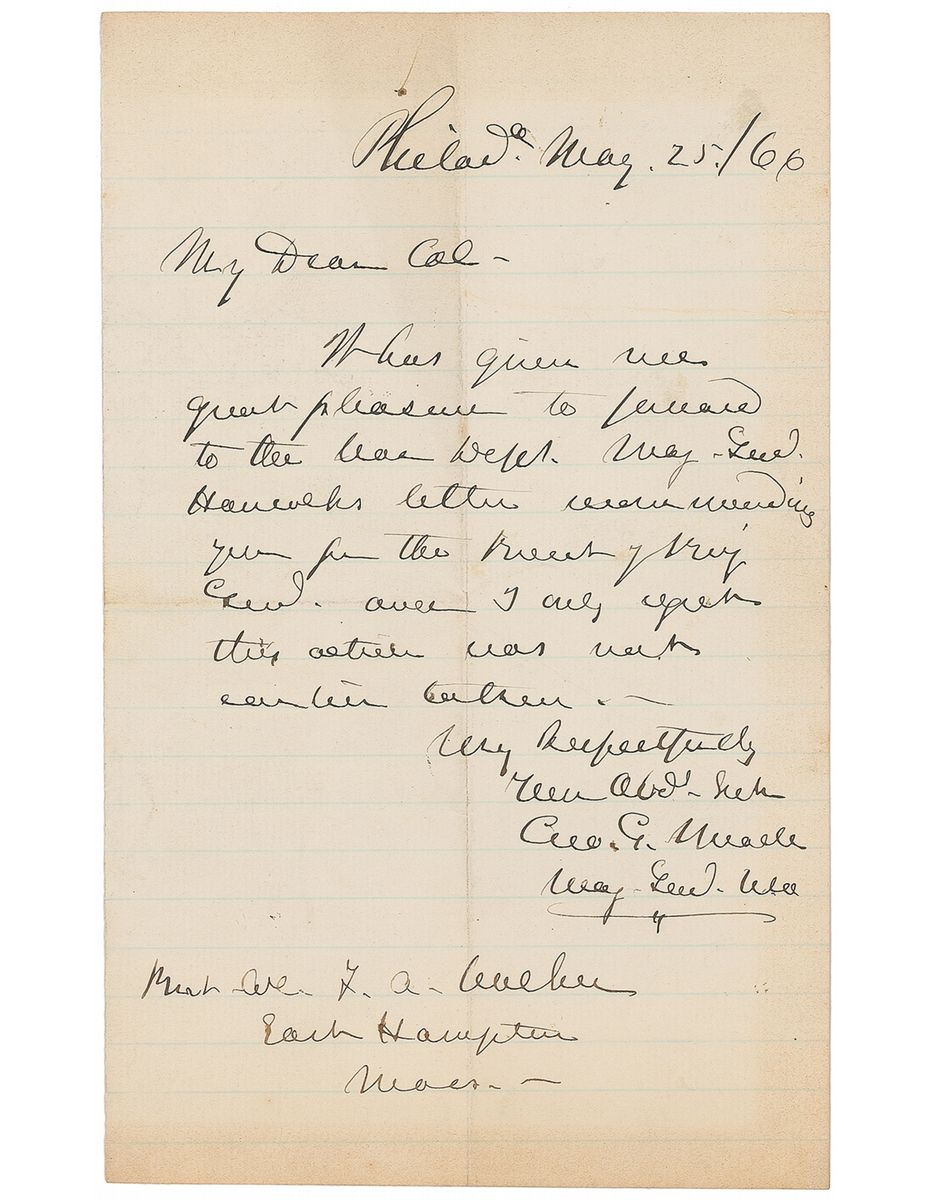 Philad.ª May. 25./66
My Dear Col -
It has given me
great pleasure to forward
to the War Dept. Maj - Genl.
Hancocks letter recommending
you for the Brevet of Brig
Genl. and I only regret
this action was not
earlier taken. —
Very Respectfully
Your Obdt. Svt
Geo. G. Meade
Maj - Genl. USA
Bvt Col. F. A. Walker
East Hampton
Mass. —